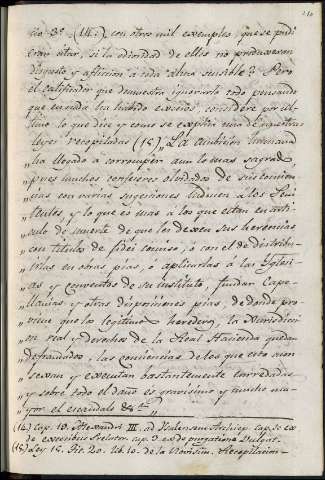 nio 3º (14) con otros mil exemplos que se pudi
eran citar, si la odiosidad de ellos no produxeran
disgusto y afliccion a toda alma sensible? Pero
el calificador que demuestra ignorarlo todo pensando
que en nada ha habido excesos, considere por ul-
timo lo que dice y como se explica una de nuestras
leyes recopiladas (15) „ La ambicion humana
„ ha llegado a corromper aun lo mas sagrado
„ pues muchos confesores olvidados de su concien-
„ cias con varias sugestiones inducen á los Peni-
„ tentes, y lo que es mas a los que estan en arti-
„ culo de muerte de que les dexen sus herencias
„ con titulos de fidei comiso, ó con el de distribu-
„ irlas en obras pias, o aplicarlas á las Iglesi-
„ as y conventos de su instituto, fundar Cape-
„ llanias y otras disposiciones pias, de donde pro-
„ viene que los legitimos herederos, la Jurisdicci-
„ on real y derechos de la Real Hacienda quedan
„ defraudados, las conciencias de los que esto acon-
„ sexan y executan bastantemente enredadas
„ y sobre todo el daño es gravisimo y mucho ma-
„ yor el escandalo &ta „
(14) Cap. 10. Alexandri III. ad Archiep. cap. 10 ex
de excesibus Prelator. cap. ex de purgatione Vulgar.
(15) Ley 15. Tit. 20. Lib. 10. de la Novisim. Recopilacion.